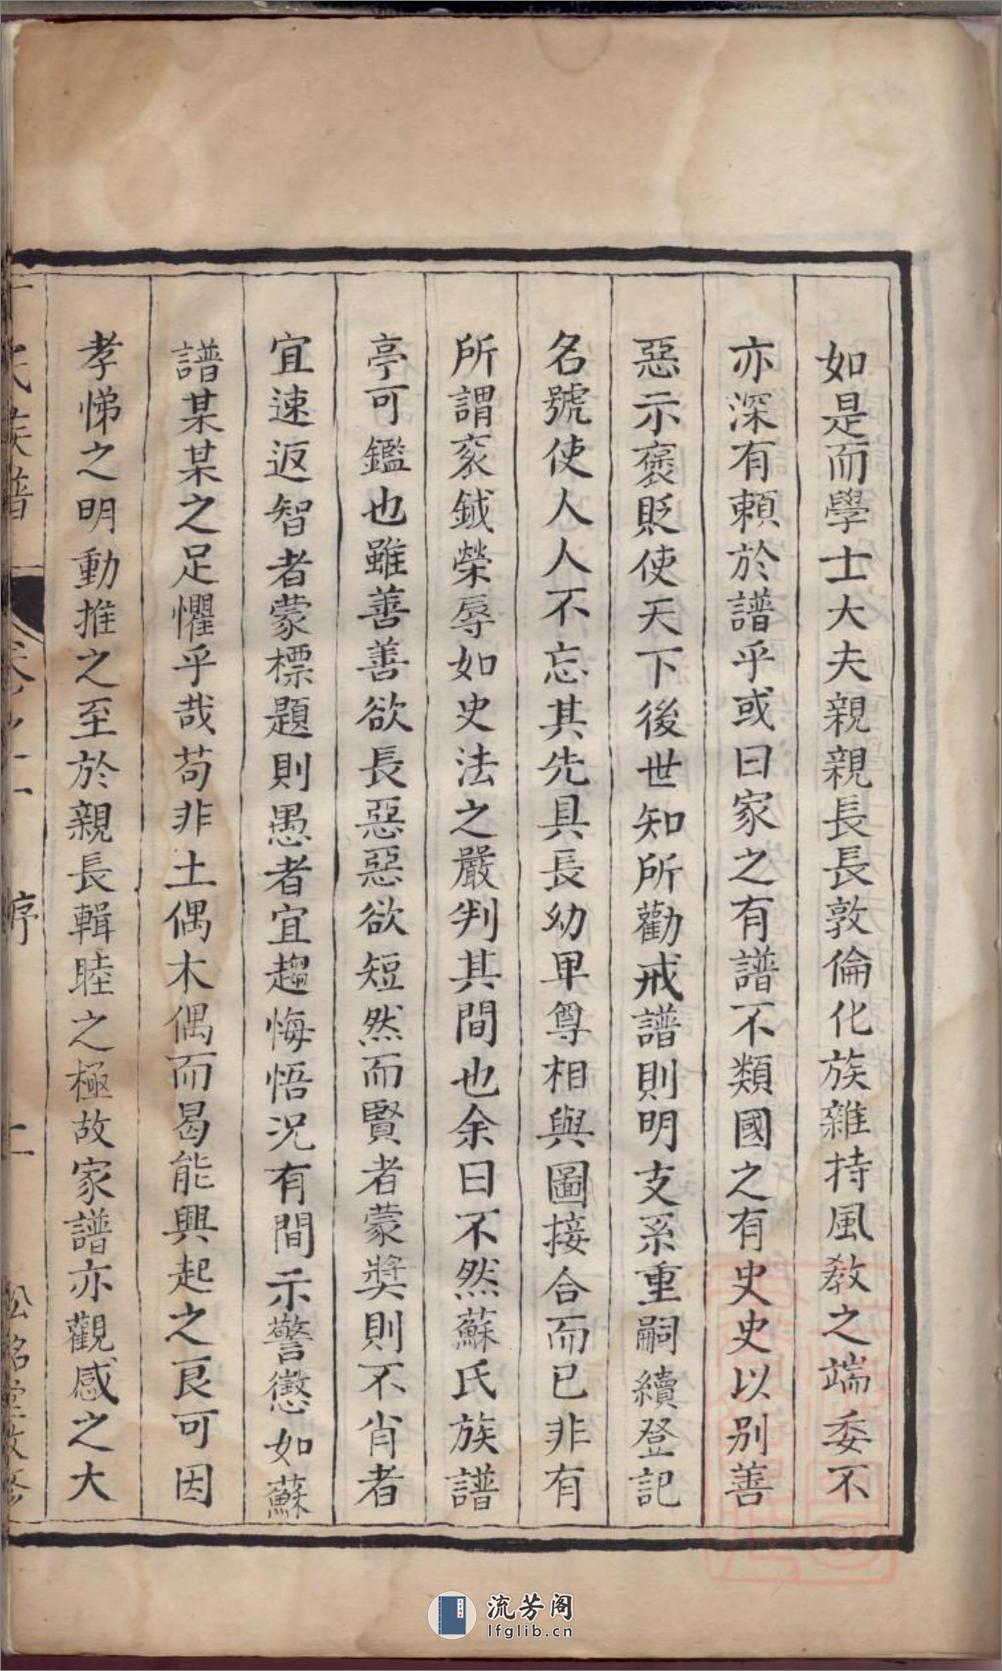 如是而學士大夫親親長長敦倫化族雜持風教之端委不
亦深有賴於譜乎或曰家之有譜不類國之有史史以別善
惡示褒貶使天下後世知所勸戒譜則明支系重嗣續登記
名號使人人不忘其先具長幼卑尊相與圖接合而已非有
所謂袞鉞榮辱如史法之嚴判其間也余曰不然蘇氏族譜
亭可鑑也雖善善欲長惡惡欲短然而賢者蒙獎則不肖者
宜速返智者蒙標題則愚者宜趨悔悟況有間示警懲如蘇
譜某某之足懼乎哉苟非土偶木偶而曷能興起之良可因
孝悌之明動推之至於親長輯睦之極故家譜亦觀感之大
氏族譜
序
流芳阁
lfglib.cn